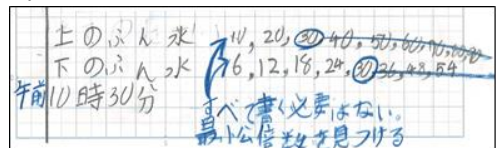 上のふん水 10, 20, 30, 40, 50, 60, 70, 80, 90
下のふん水 6, 12, 18, 24, 30, 36, 48, 54
午前10時30分
すべて書く必要はない。
最小公倍数を見つける